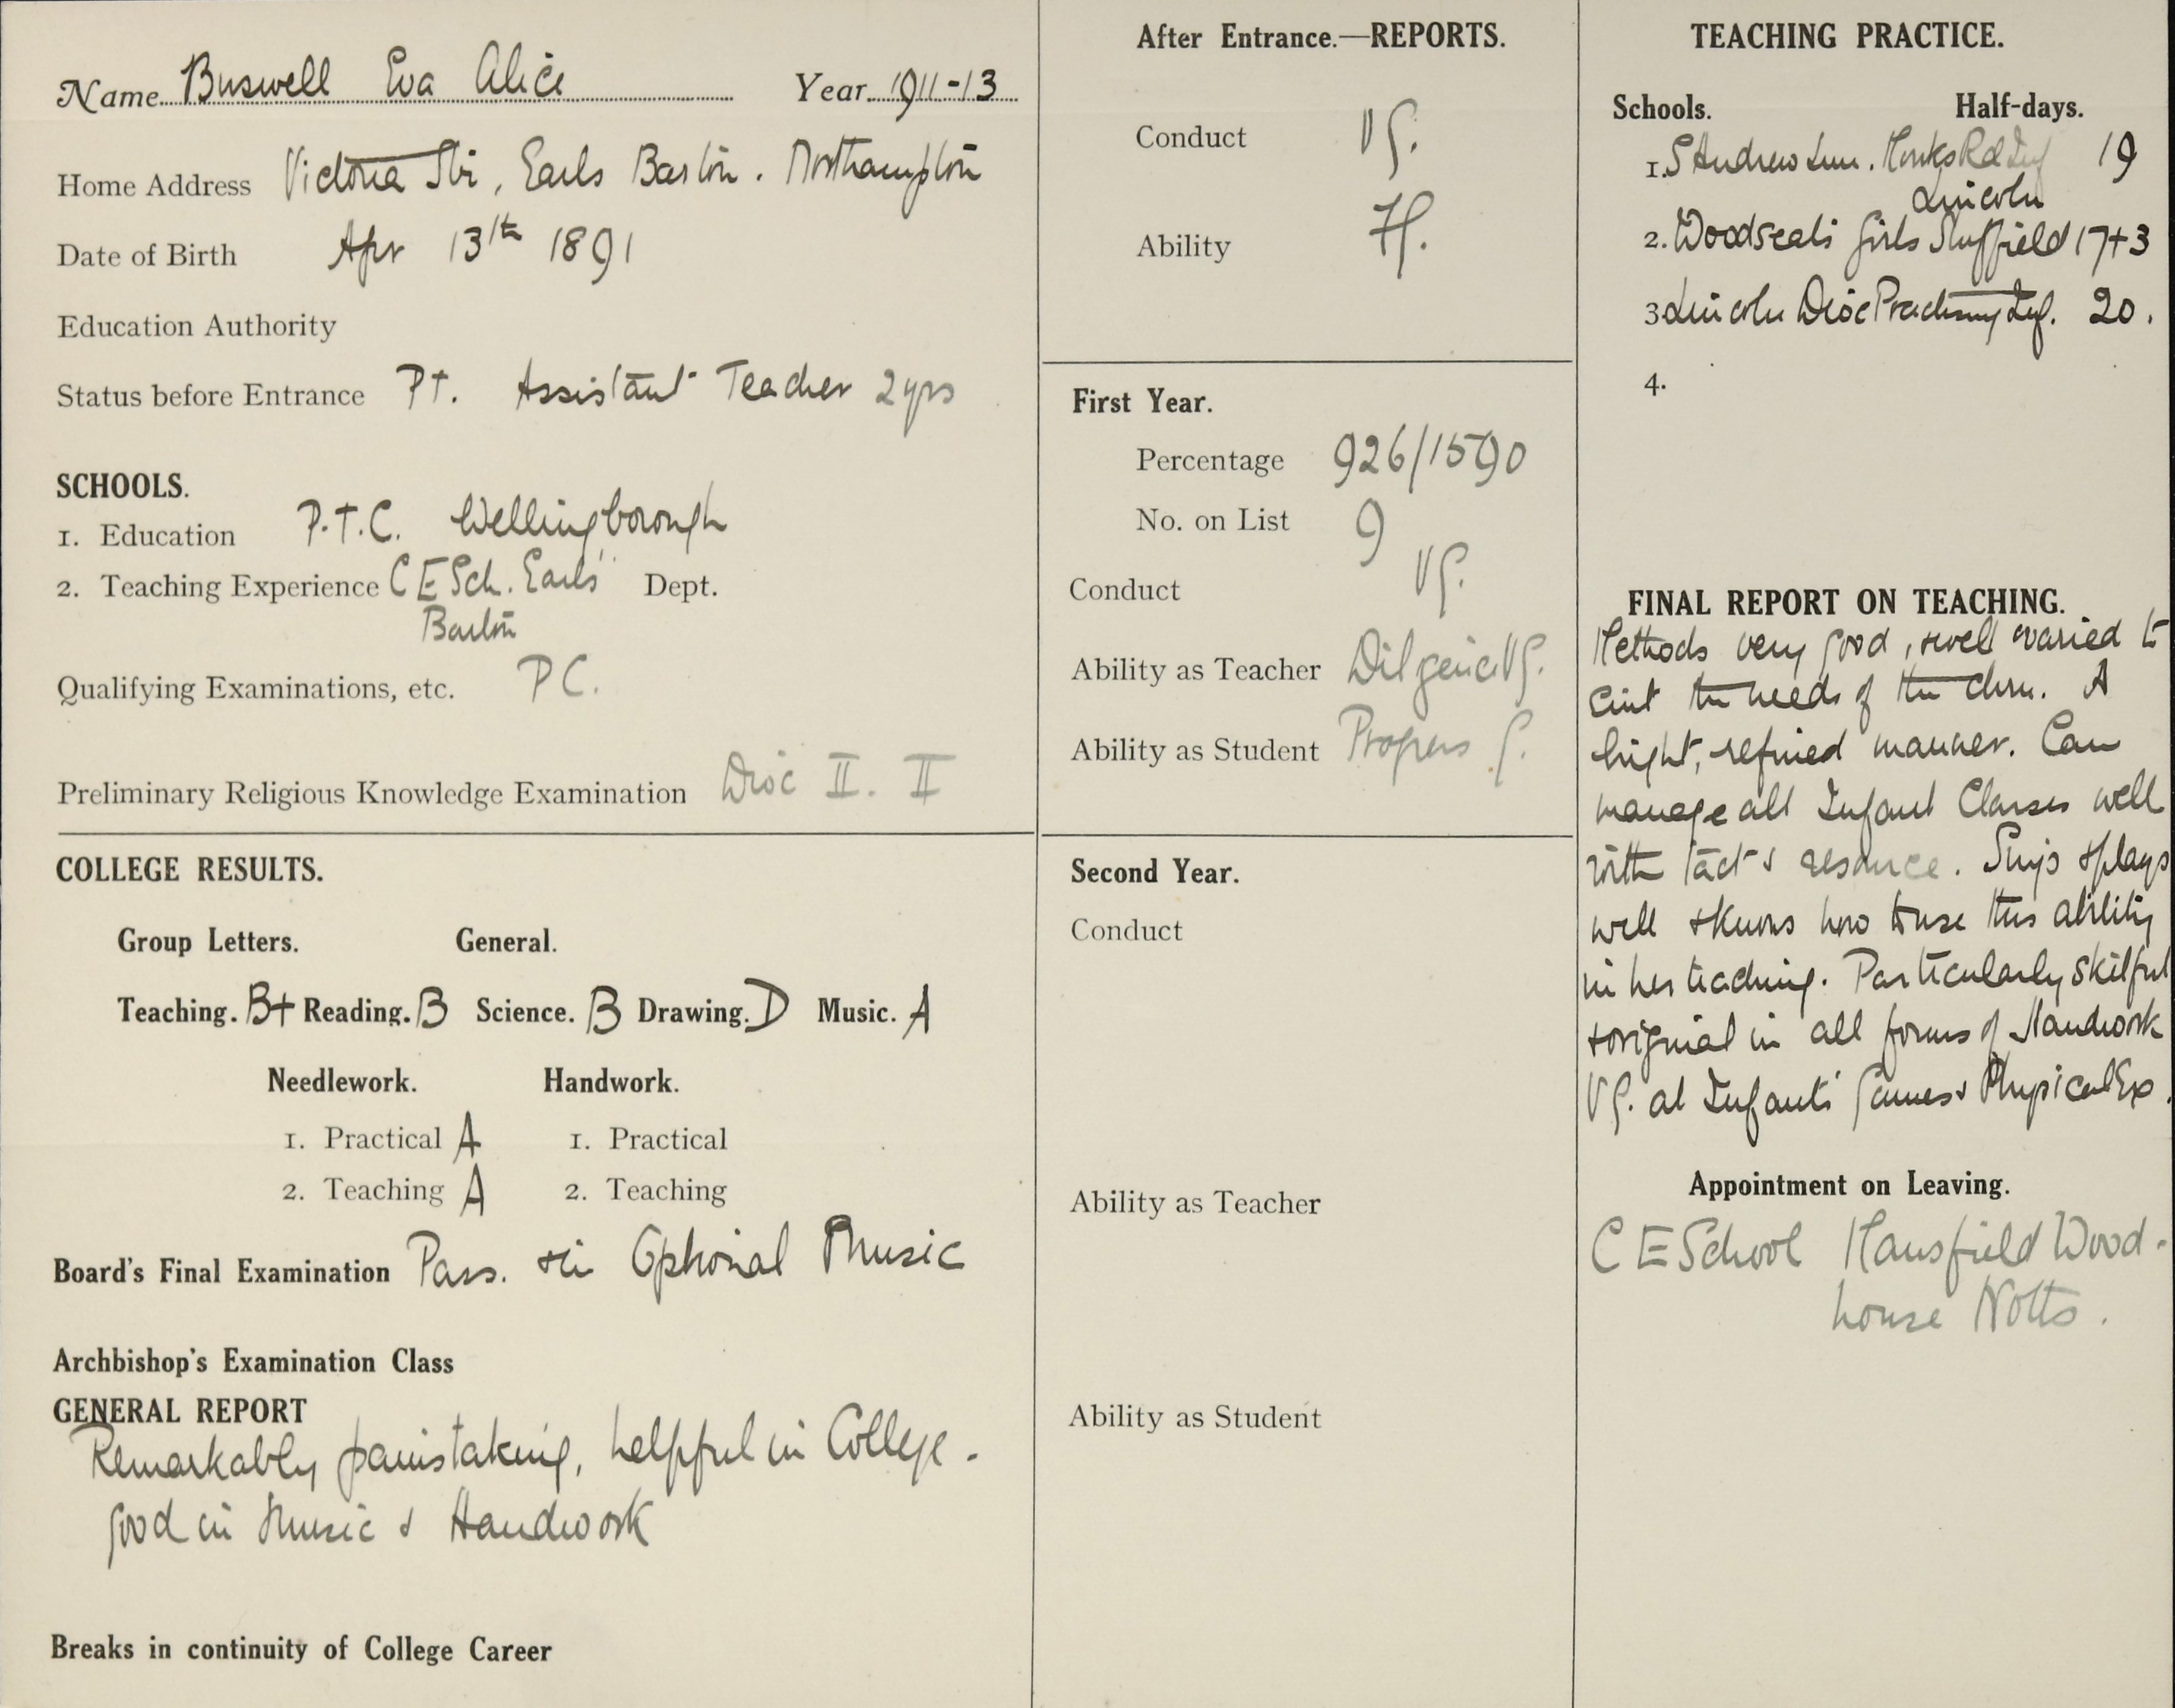 Name Buswell Eva Alice Year 1911-13
Home Address Victoria Str, Earls Barton. Northampton
Date of Birth Apr 13th 1891
Education Authority
Status before Entrance PT. Assistant Teacher 2yrs
SCHOOLS.
1. Education P.T.C. Wellingborough
2. Teaching Experience C E Sch. Earls Dept.
Barton
Qualifying Examinations, etc. PC.
Preliminary Religious Knowledge Examination Dioc II. II
COLLEGE RESULTS.
Group Letters. General.
Teaching. B+ Reading. B Science. B Drawing. D Music. A
Needlework. Handwork.
1. Practical A 1. Practical
2. Teaching A 2. Teaching
Board's Final Examination Pass. + in Optional Music
Archbishop's Examination Class
GENERAL REPORT
Remarkably painstaking, helpful in College.
good in Music & Handwork
Breaks in continuity of College Career
After Entrance.—REPORTS.
Conduct VG.
Ability
First Year.
Percentage 926/1590
No. on List 9
Conduct VG.
Ability as Teacher Diligence VG.
Ability as Student Progress G.
Second Year.
Conduct
Ability as Teacher
Ability as Student
TEACHING PRACTICE.
Schools. Half-days.
1. S Andrew Monks Rd Inf 19
Lincoln
2. Woodseats Girls Sheffield 17+3
3 Lincoln Dioc Practising Inf. 20.
4.
FINAL REPORT ON TEACHING.
Methods very good, & well varied to
suit the needs of the chn. A
bright, refined manner. Can
manage all Infant Classes well
with tact & resource. Sings & plays
well & knows how to use this ability
in her teaching. Particularly skilful
& original in all forms of Handwork
VG. at Infants' Games & Physical Ex.
Appointment on Leaving.
C E School Mansfield Wood-
house Notts.